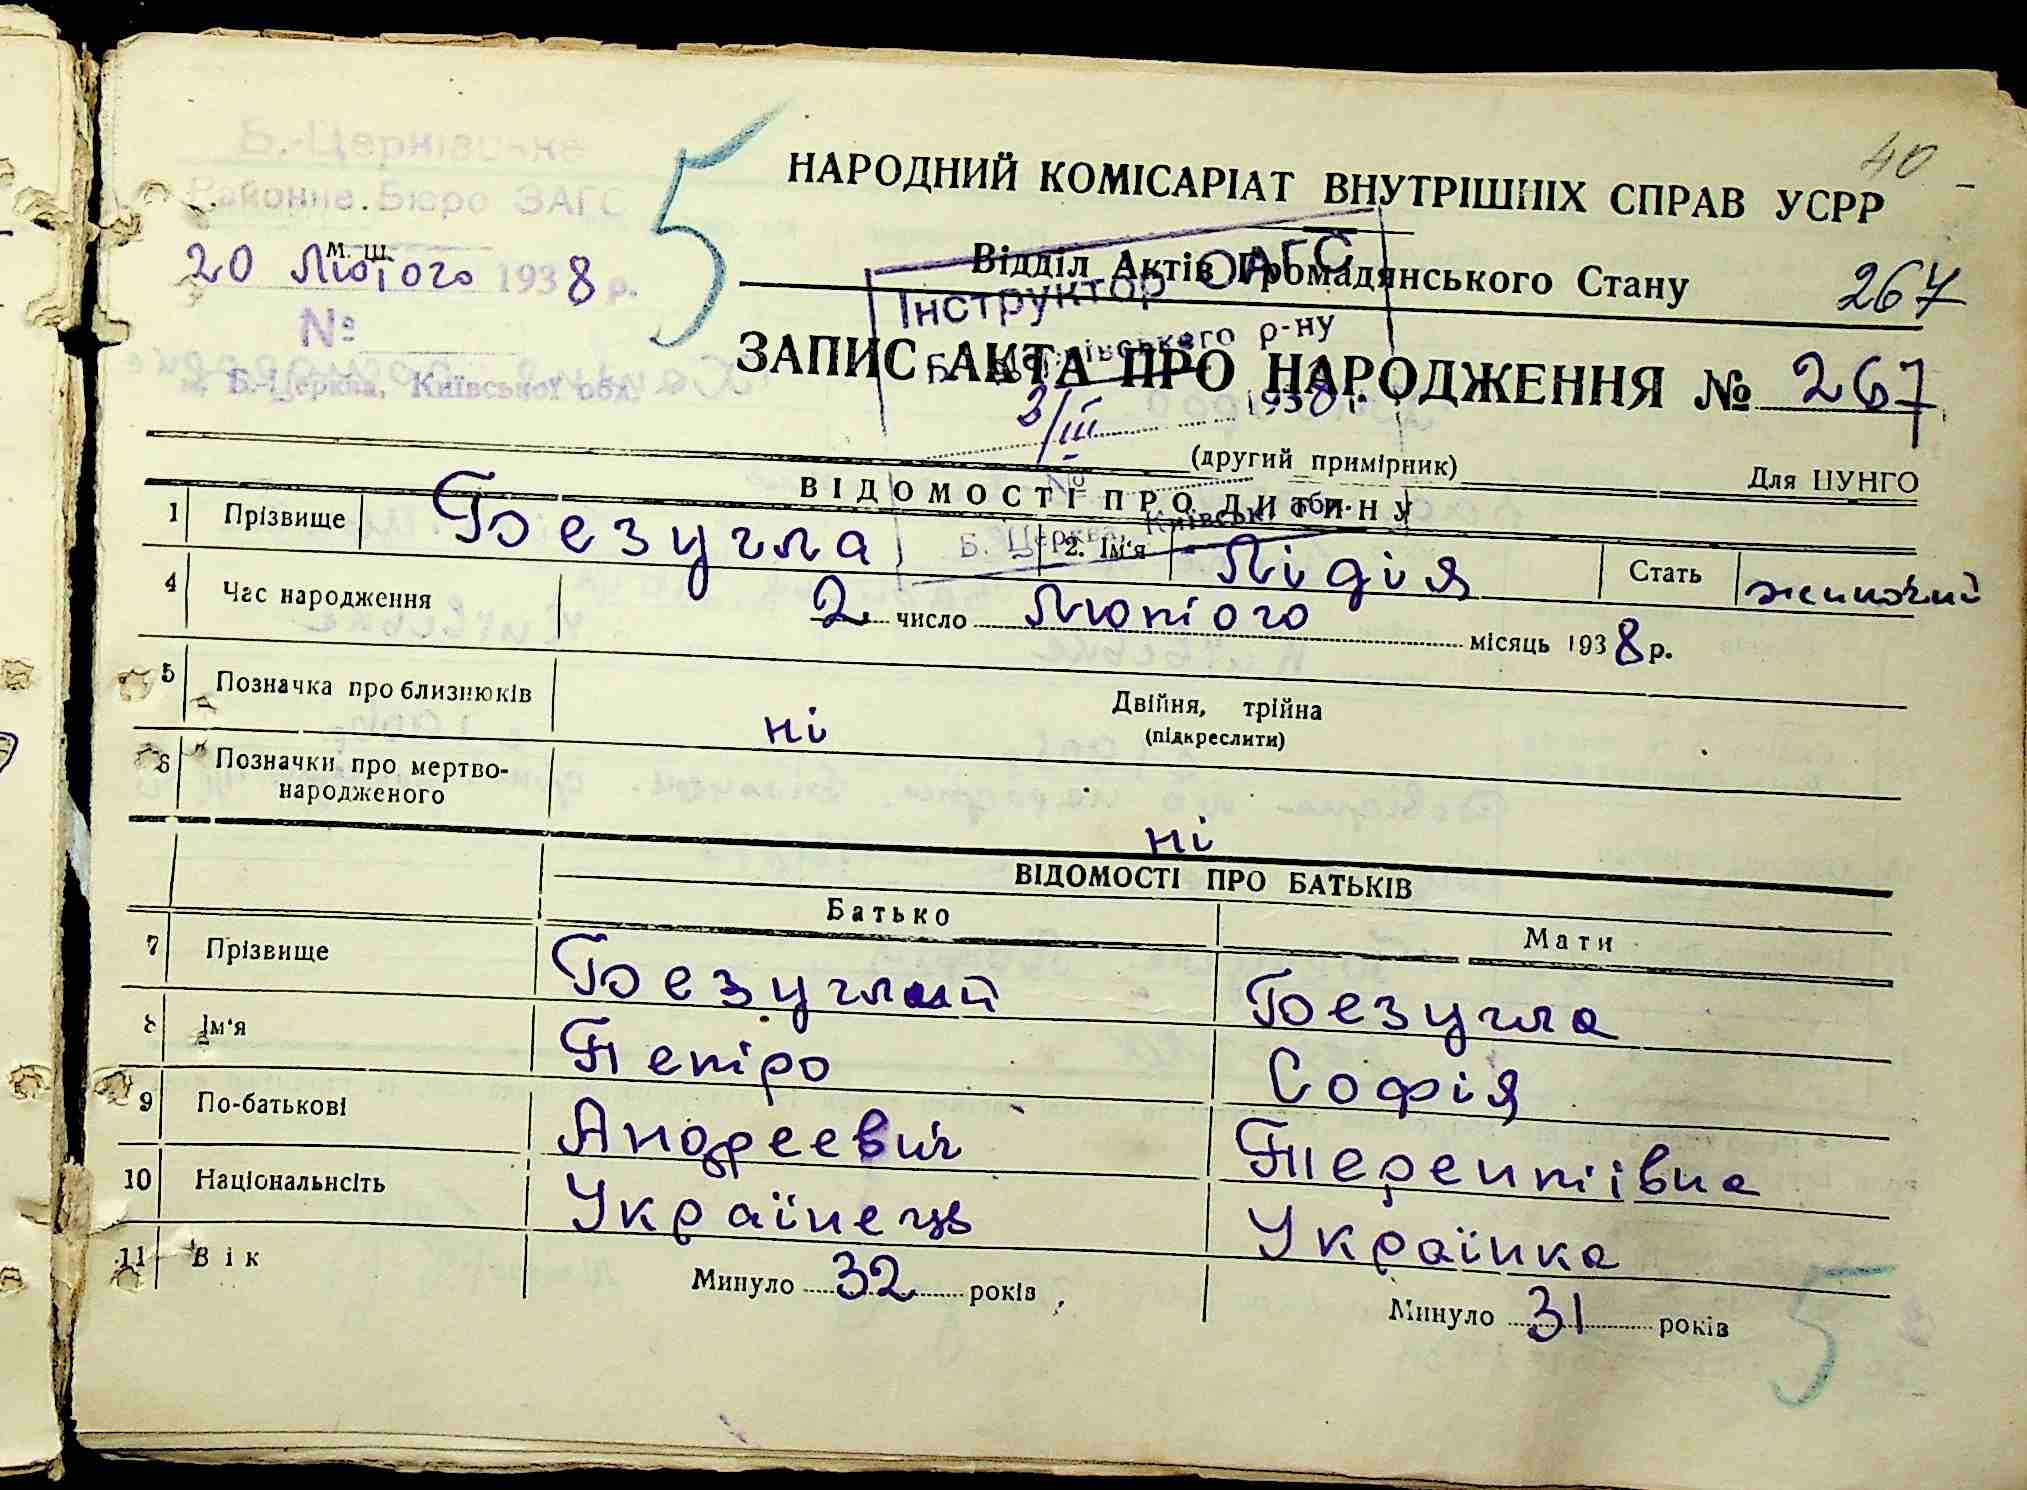 40
Б.-Церківське
Районне Бюро ЗАГС
НАРОДНИЙ КОМІСАРІАТ ВНУТРІШНІХ СПРАВ УСРР
5
м. ш.
20 Лютого 1938 р.
Відділ Актів Громадянського Стану
267
Інструктор ОАГС
№
Б. Церківського р-ну
ЗАПИС АКТА ПРО НАРОДЖЕННЯ № 267
м. Б.-Церква, Київської обл.
3/III 1938 р.
(другий примірник)
Для ЦУНГО
№
ВІДОМОСТІ ПРО ДИТИНУ
Б. Церква, Київськ. обл.
1 Прізвище Безугла 2. Ім'я Лідія Стать жиночий
4 Час народження 2 число Лютого місяць 1938 р.
5 Позначка про близнюків ні Двійня, трійна
(підкреслити)
6 Позначки про мертво-
народженого
ні
ВІДОМОСТІ ПРО БАТЬКІВ
Батько Мати
7 Прізвище Безуглий Безугла
8 Ім'я Петро Софія
9 По-батькові Андреевич Терентіівна
10 Національнсіть Українець Українка
11 Вік Минуло 32 років Минуло 31 років
5